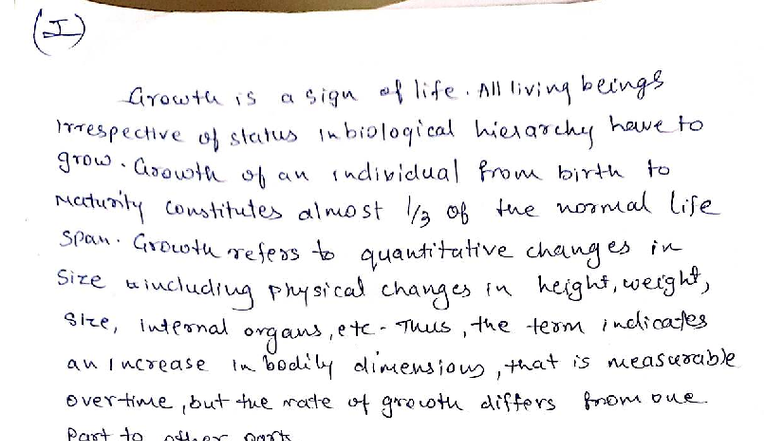 (I)
Growth is a sign of life. All living beings
Irrespective of status in biological hierarchy have to
grow. Growth of an individual from birth to
maturity constitutes almost 1/3 of the normal life
span. Growth refers to quantitative changes in
size including physical changes in height, weight,
size, internal organs, etc. Thus, the term indicates
an increase in bodily dimensions, that is measurable
overtime, but the rate of growth differs from one
Part to other parts